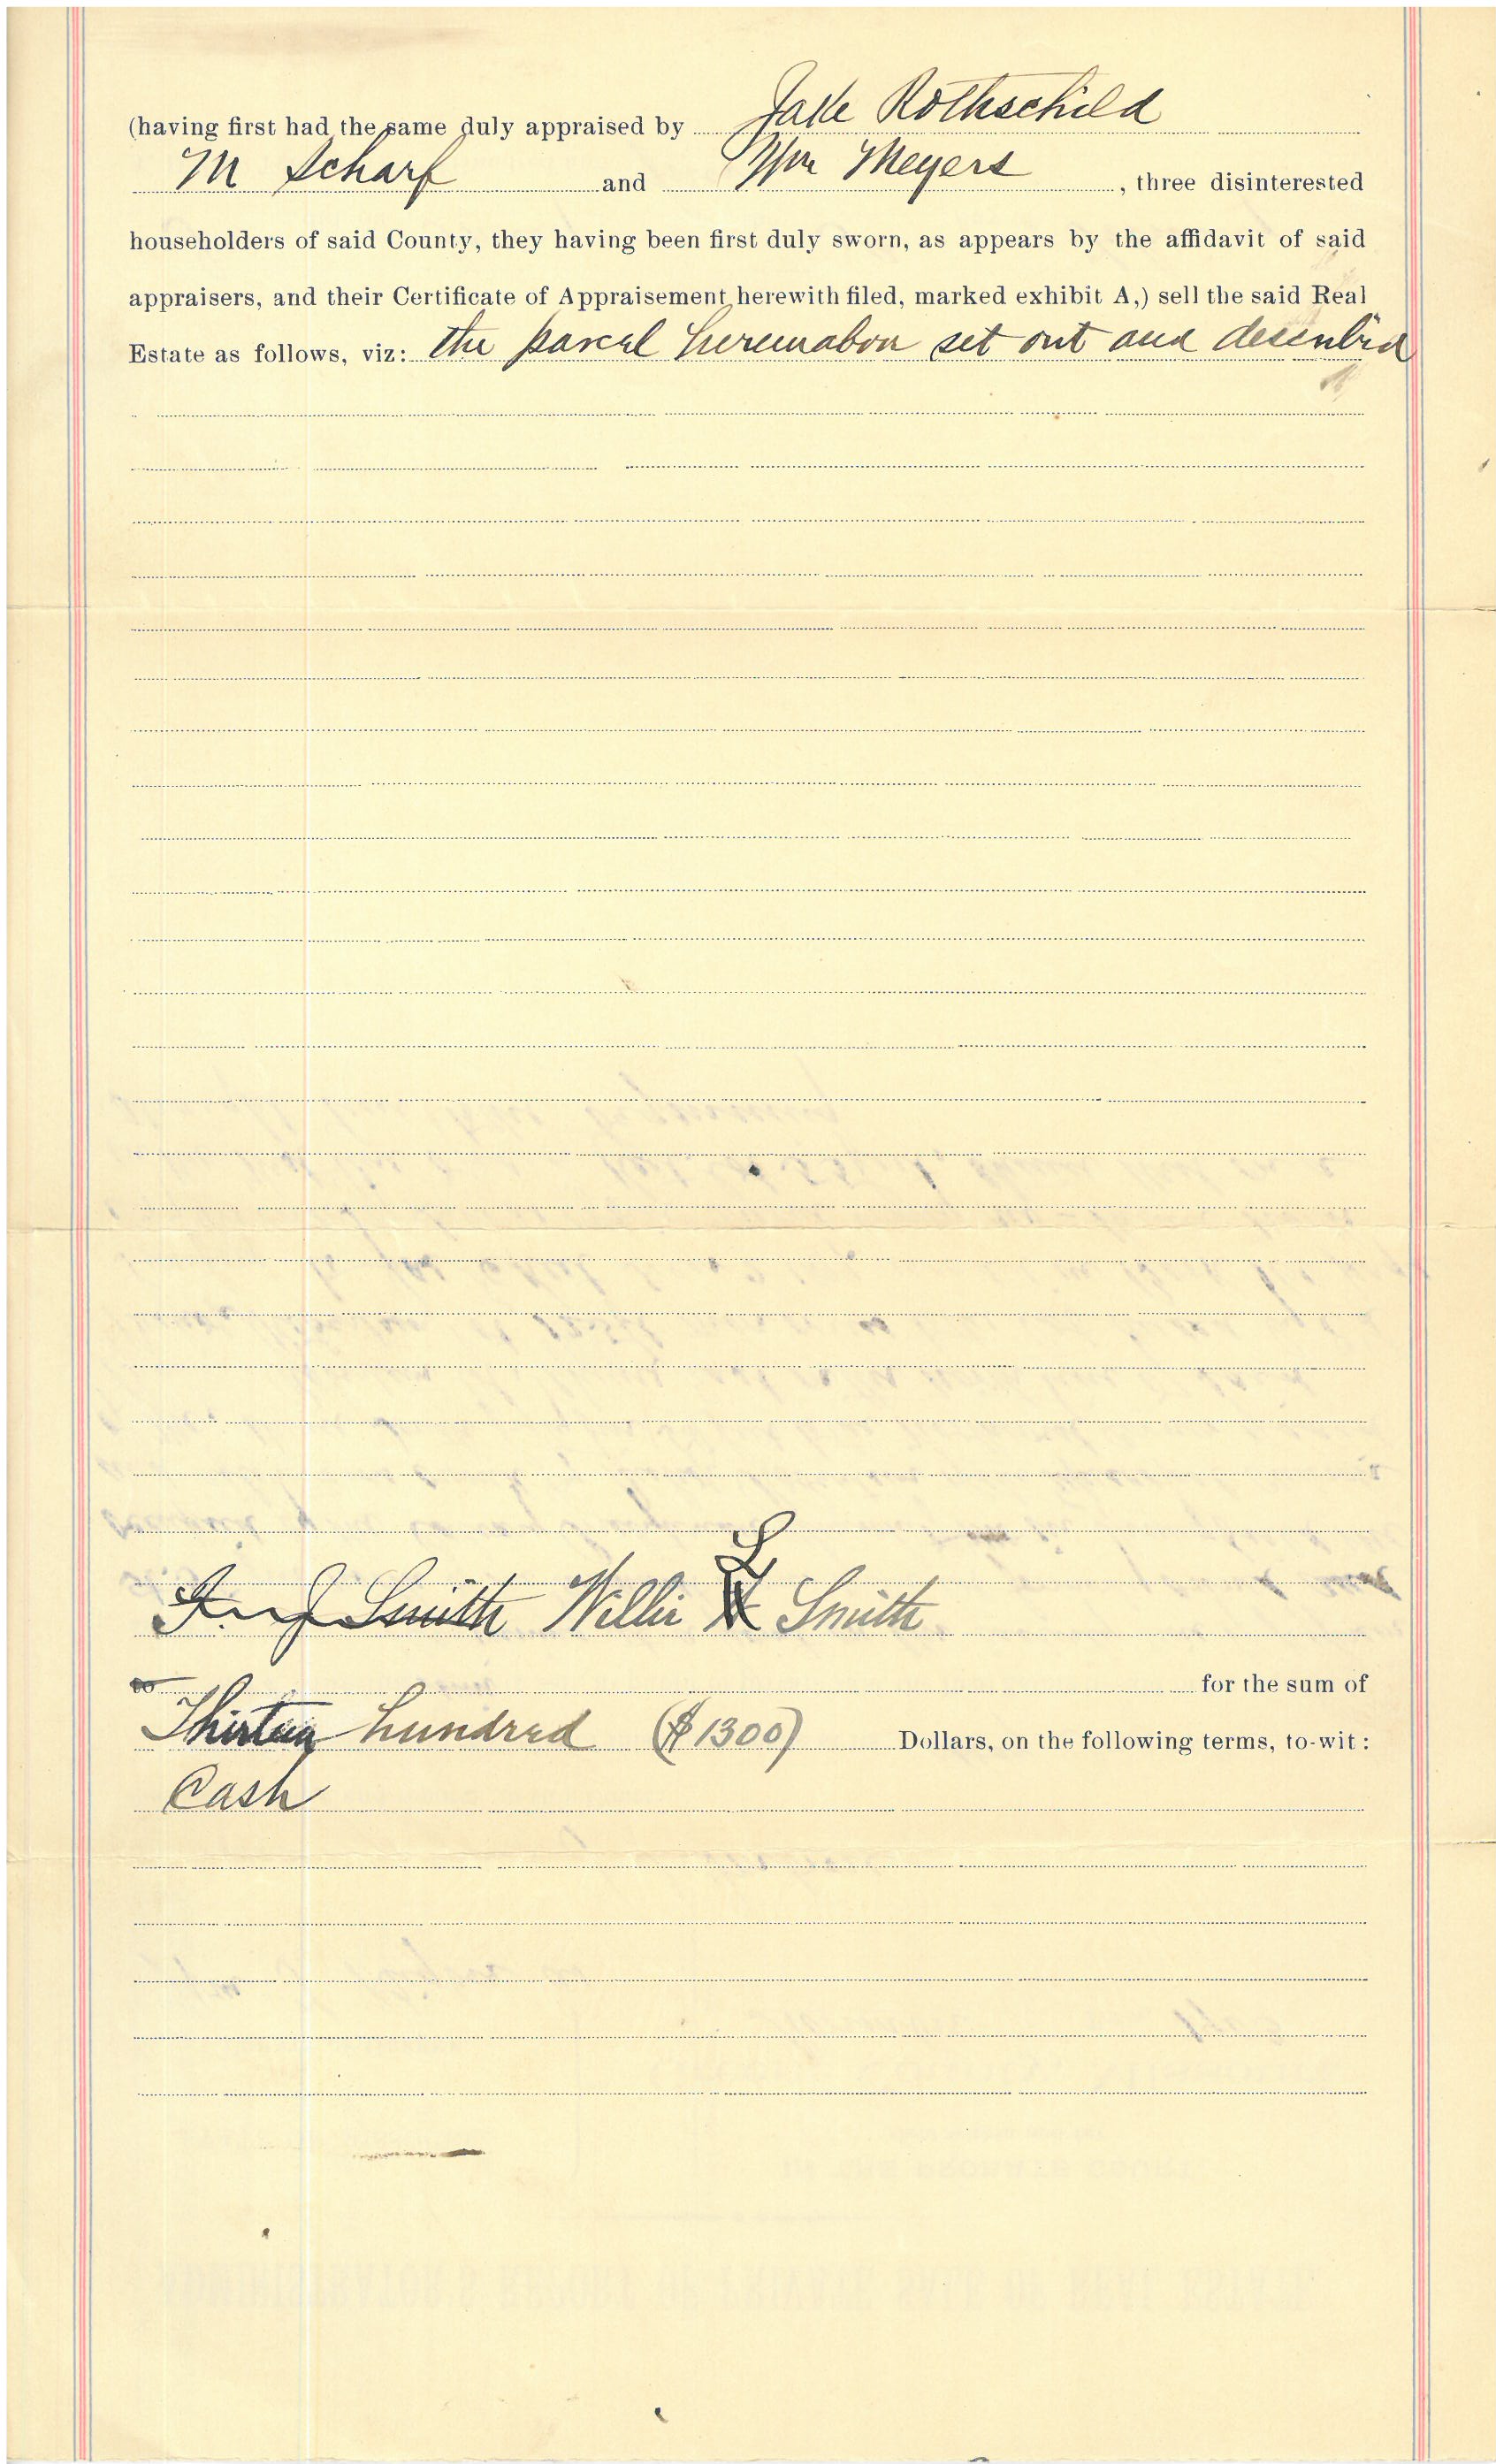 (having first had the same duly appraised by Jake Rothschild
M Scharf and Wm Meyers, three disinterested
householders of said County, they having been first duly sworn, as appears by the affidavit of said
appraisers, and their Certificate of Appraisement herewith filed, marked exhibit A,) sell the said Real
Estate as follows, viz: the parcel hereinabove set out and described
Smith Willie L Smith
to for the sum of
Thirteen hundred ($1300) Dollars, on the following terms, to-wit:
Cash